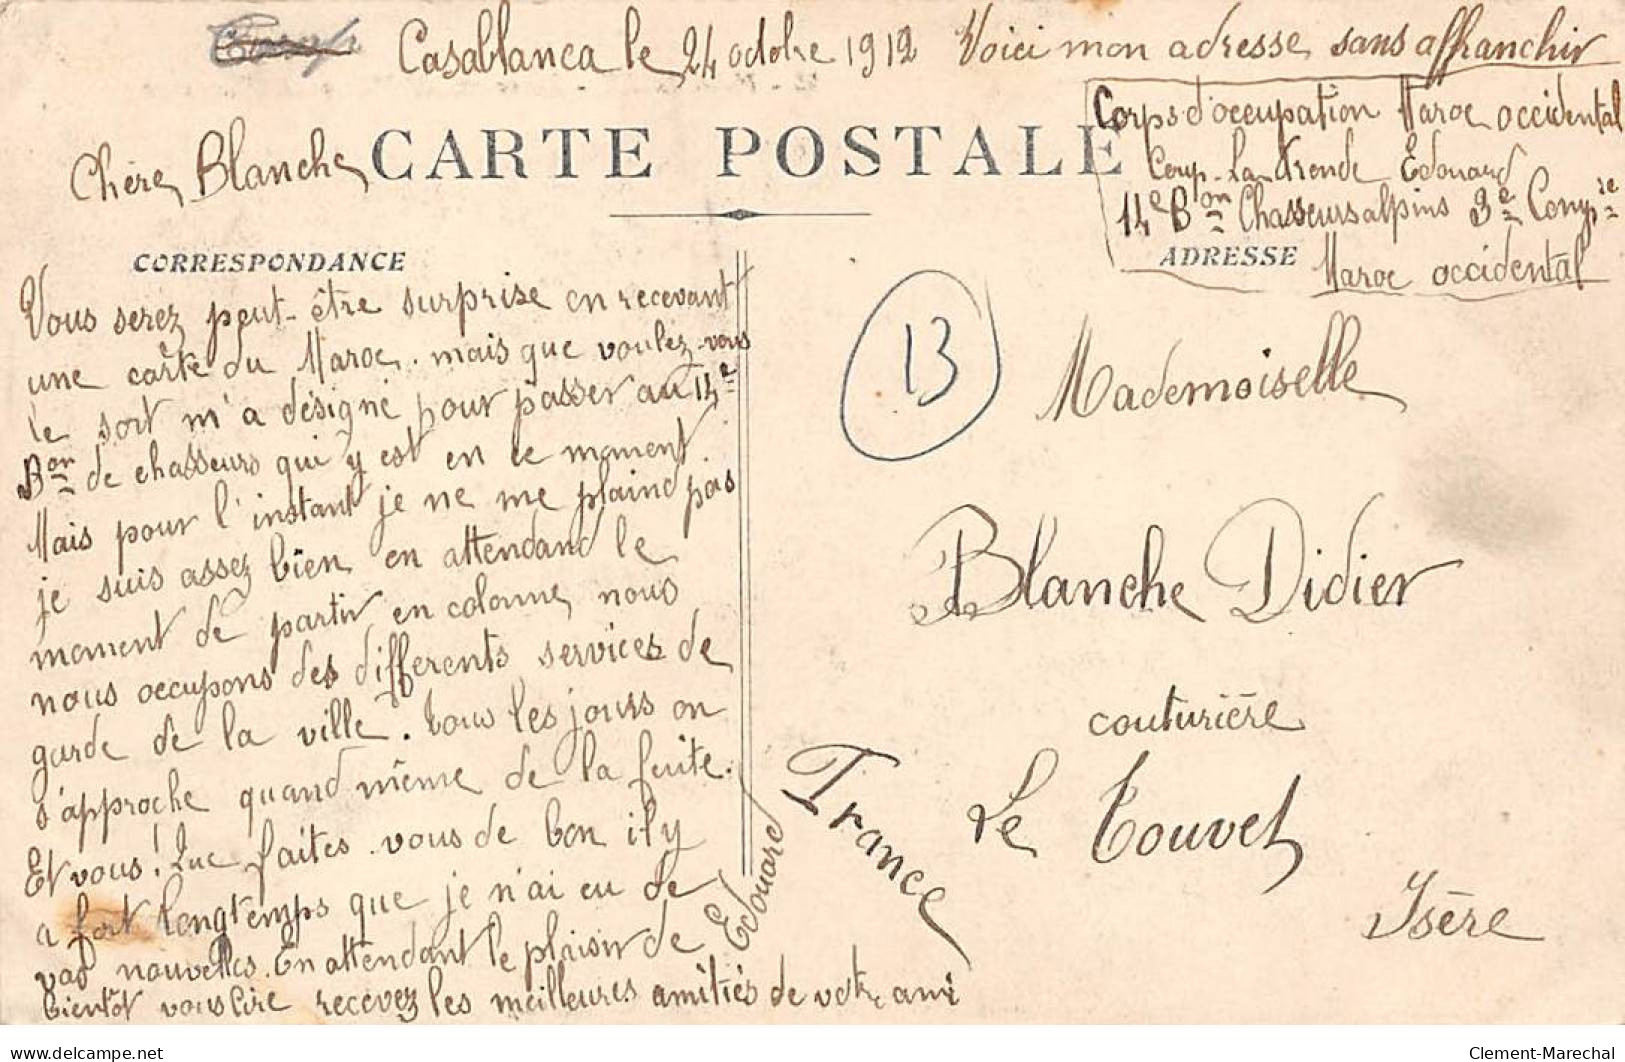 Casablanca le 24 octobre 1912
Voici mon adresse sans affranchir
Corps d'occupation Maroc occidental
Edouard
14e Bon Chasseurs alpins 3e Compie
Maroc occidental
CARTE POSTALE
Chère Blanche
CORRESPONDANCE
ADRESSE
Vous serez peut-être surprise en recevant
une carte du Maroc. mais que voulez-vous
le sort m'a désigné pour passer au 14e
Bon de chasseurs qui y est en ce moment.
Mais pour l'instant je ne me plaind pas
je suis assez bien en attendand le
moment de partir en colonne, nous
nous occupons des differents services de
garde de la ville. Tous les jours on
s'approche quand même de la fuite.
Et vous! Que faites-vous de bon il y
a fort longtemps que je n'ai eu de
vos nouvelles. En attendant le plaisir de
bientôt vous lire recevez les meilleures amitiés de votre ami
Edouard
13
Mademoiselle
Blanche Didier
couturière
Le Touvet
Isère
France
delcampe.net
Clement-Marechal